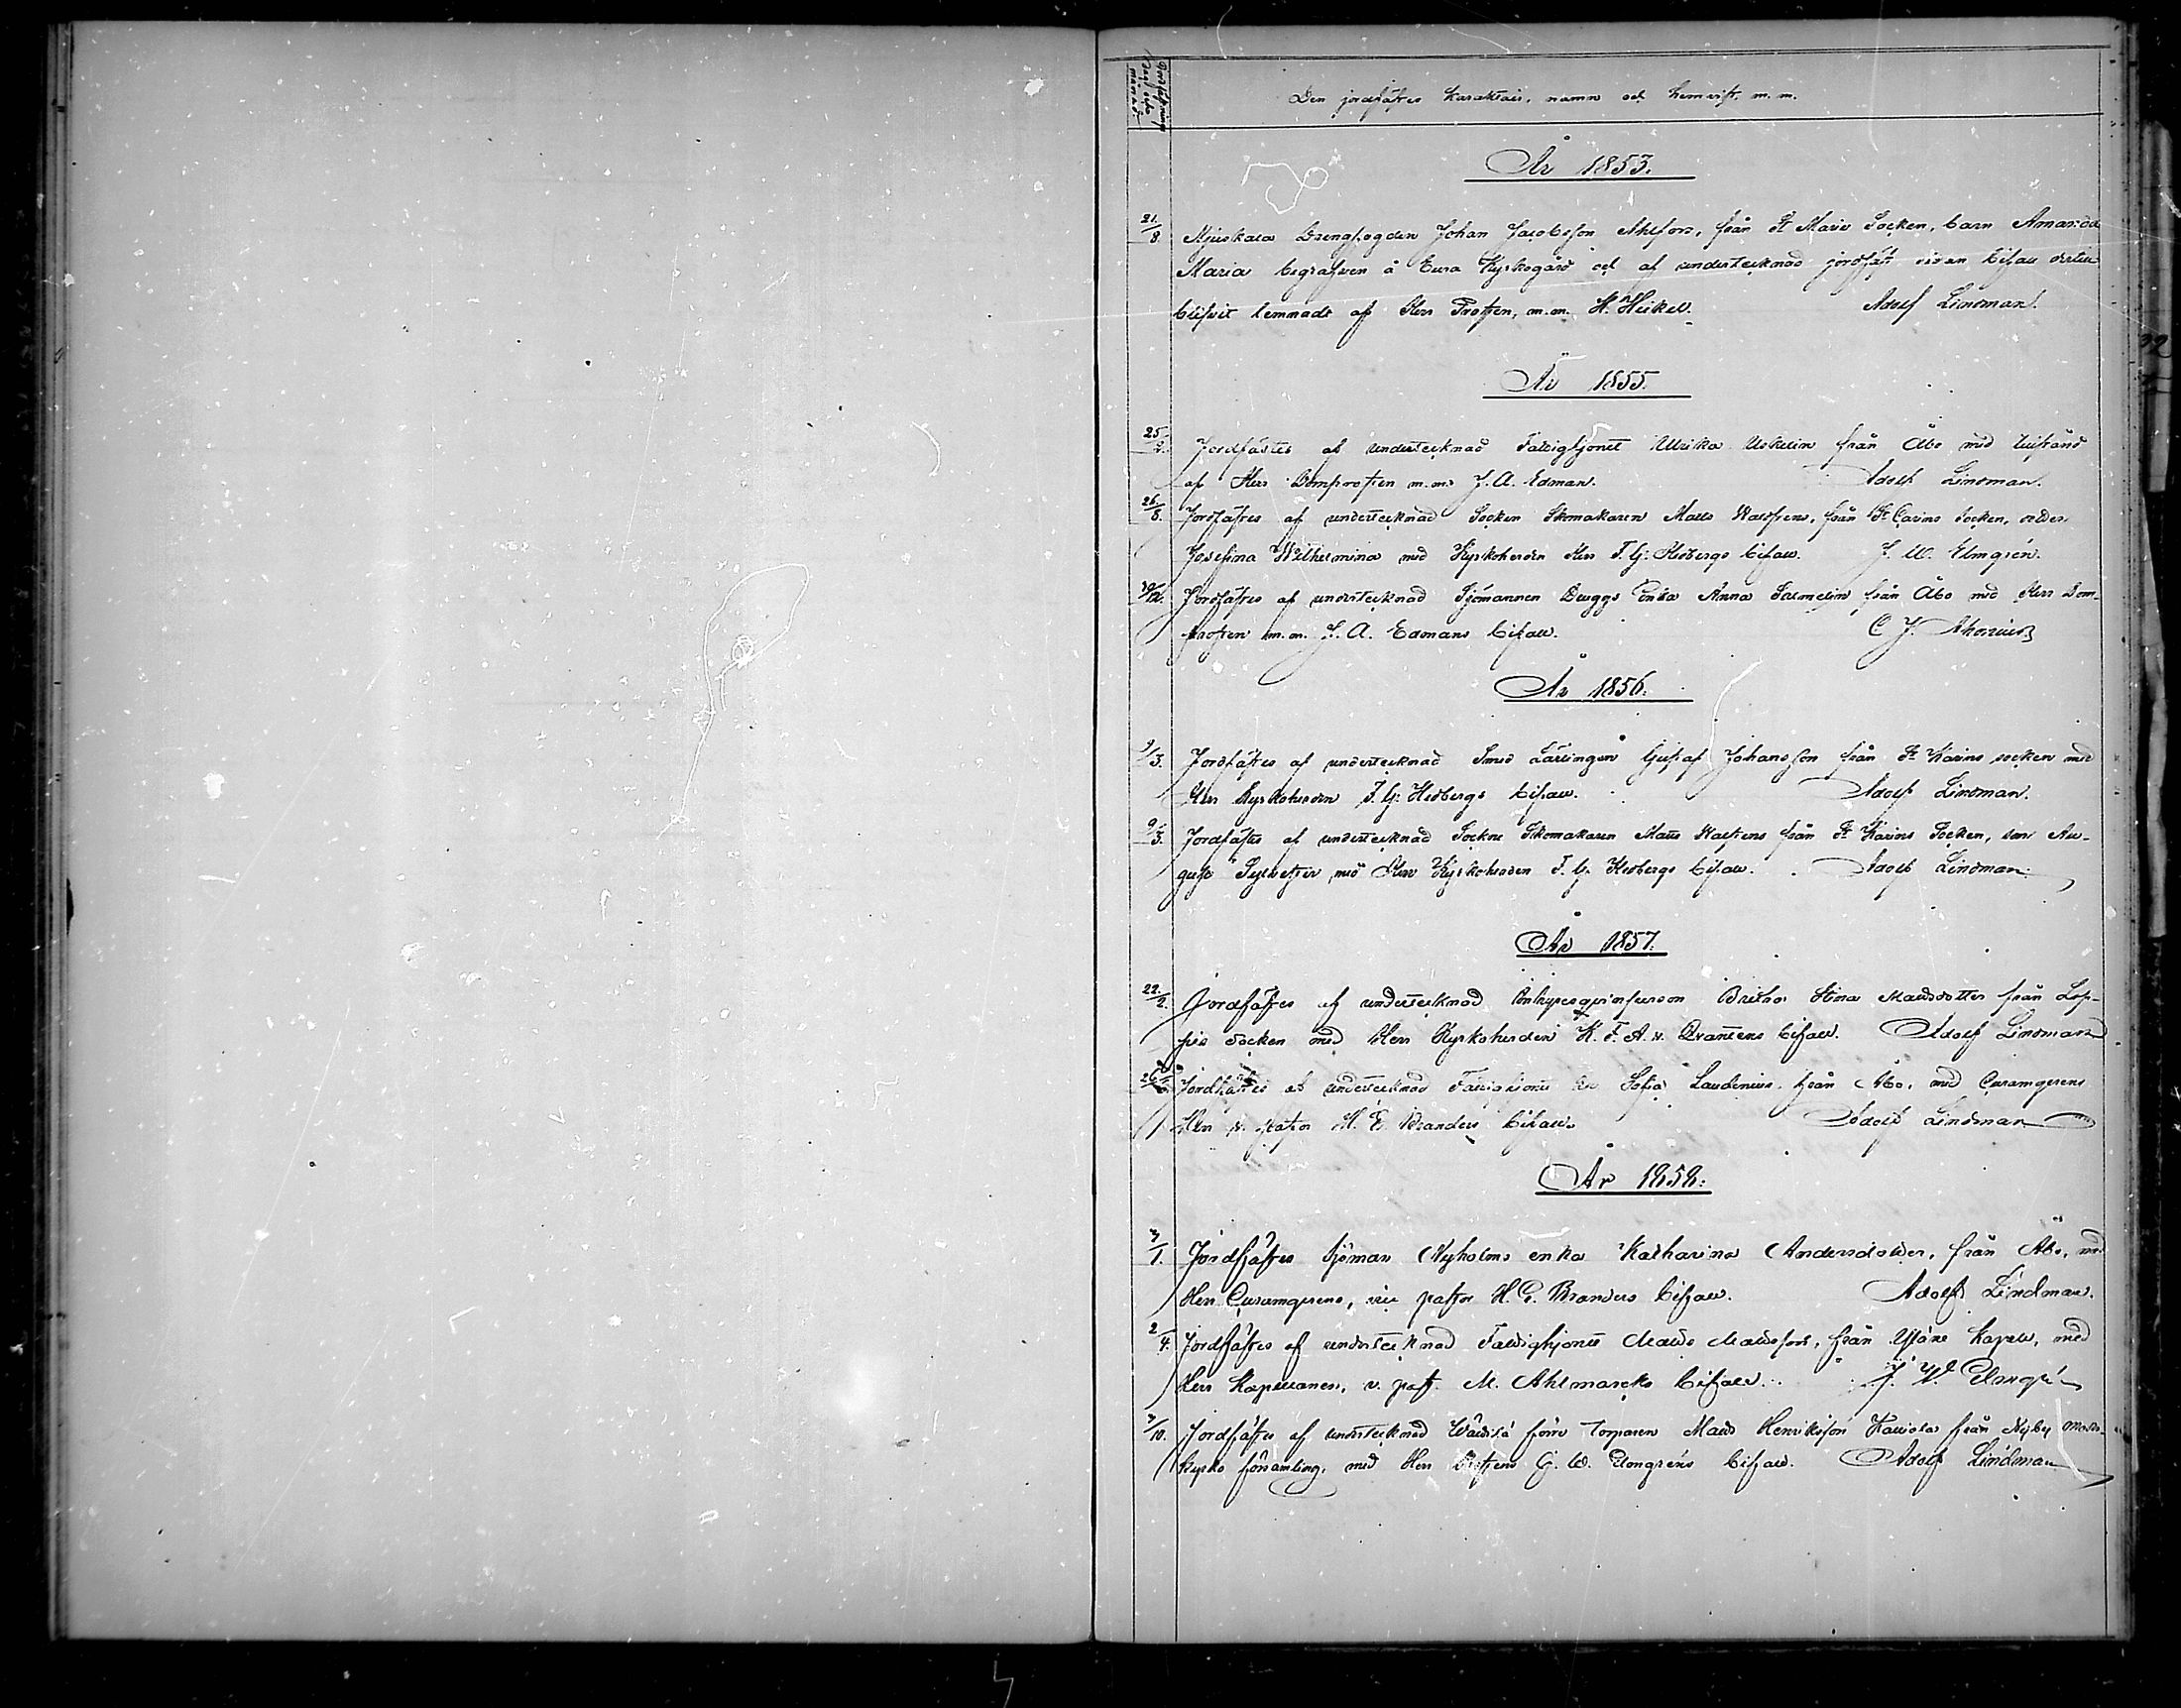 Den jordfästes karakter, namn och hemvist, m. m.
År 1853.
21/8. Drengfogden Johan Jacobsson Ahlfors, från St Marie Socken, barn Amanda
Maria begrafven å Eura Kyrkogård och af undertecknad jordfäst sedan bifall dertill
blifvit lemnadt af Herr Prosten, m.m. H. Heikel. Adolf Lindman.
År 1855.
25/2. Jordfästes af undertecknad Fattighjonet Ulrika från Åbo med
af Herr Domprosten m.m. J. A. Edman. Adolf Lindman.
26/8. Jordfästes af undertecknad Socken Skomakaren Matts från St Carins Socken,
Josefina Wilhelmina med Kyrkoherden Herr F. G. Hedbergs bifall. J. W. Elmgrén.
30/12. Jordfästes af undertecknad Sjömannen enka Anna Salmelin från Åbo med Herr Dom-
prosten m.m. J. A. Edmans bifall. C. J.
År 1856.
9/3. Jordfästes af undertecknad Smed Lärlingen Gustaf Johansson från St Karins socken med
Herr Kyrkoherden F. G. Hedbergs bifall. Adolf Lindman.
9/3. Jordfästes af undertecknad Sockne Skomakaren Matts från St Karins Socken, son Au-
gust Sylvester, med Herr Kyrkoherden F. G. Hedbergs bifall. Adolf Lindman.
År 1857.
22/2. Jordfästes af undertecknad Britha Stina Mattsdotter från Lop-
pis Socken med Herr Kyrkoherden K. F. A. v. Qvantens bifall. Adolf Lindman
26/ Jordfästes af undertecknad Fattighjonet Sofia Laudenius från Åbo, med Curamgerens
Herr v. pastor H. G. Branders bifall. Adolf Lindman
År 1858.
3/1. Jordfästes Sjöman Nyholms enka Katharina Andersdotter, från Åbo, med
Herr Curamgerens, vice pastor H. G. Branders bifall. Adolf Lindman.
2/4. Jordfästes af undertecknad Fattighjonet Matts Mattsson, från Yläne Kapell, med
Herr Kapellanen, v. past. M. Ahlmarcks bifall. J. W. Elmgrén
3/10. Jordfästes af undertecknad förre Torparen Matts Henriksson från Nyby Moder-
kyrko församling, med Herr Prostens G. W. Elmgréns bifall. Adolf Lindman